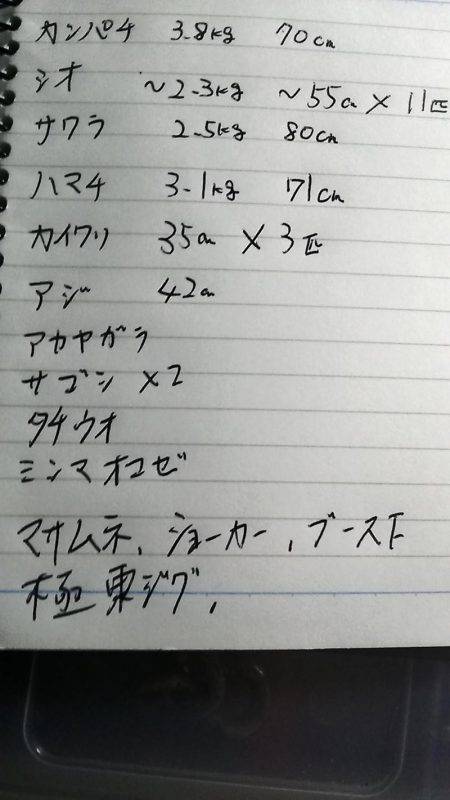 カンパチ 3.8kg 70cm
シオ ~2.3kg ~55cm × 11匹
サワラ 2.5kg 80cm
ハマチ 3.1kg 71cm
カイワリ 35cm × 3匹
アジ 42cm
アカヤガラ
サゴシ ×2
タチウオ
ミンマオコゼ
マサムネ、ジョーカー、ブースト
極東ジグ、